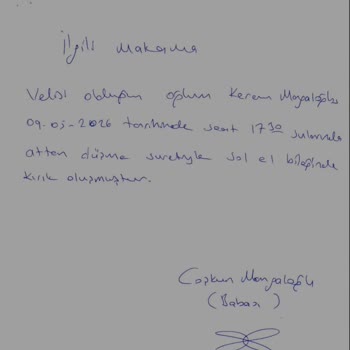 İlgili Makama
Velisi olduğum oğlum Kerem
09.05.2026 tarihinde saat 17 30 sularında
attan düşme suretiyle sol el bileğinde
kırık oluşmuştur.
Coşkun
(Babası)